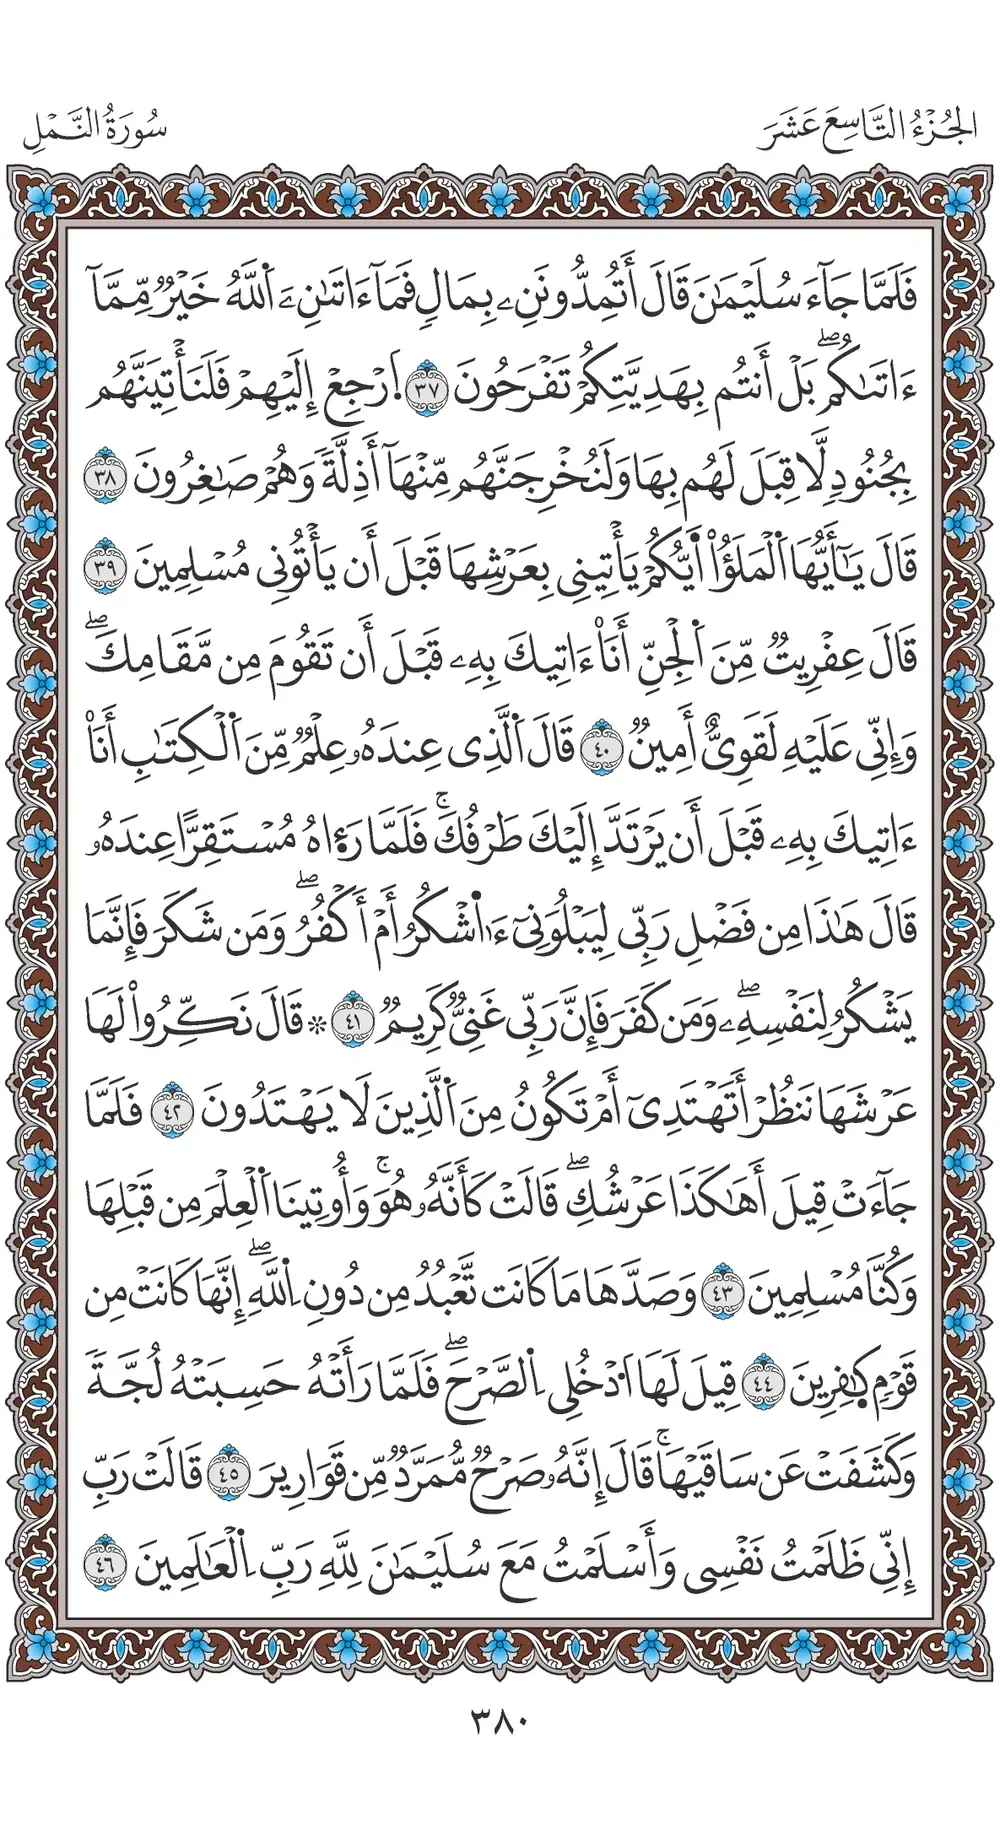 الجُزْءُ التَّاسِعَ عَشَرَ
سُورَةُ النَّمْلِ
فَلَمَّا جَآءَ سُلَيْمَٰنَ قَالَ أَتُمِدُّونَنِۦ بِمَالٖ فَمَآ ءَاتَىٰنِۦَ اَ۬للَّهُ خَيْرٞ مِّمَّآ
ءَاتَىٰكُمۖ بَلْ أَنتُم بِهَدِيَّتِكُمْ تَفْرَحُونَ ٣٧ اَ۪رْجِعْ إِلَيْهِمْ فَلَنَأْتِيَنَّهُم
بِجُنُودٖ لَّا قِبَلَ لَهُم بِهَا وَلَنُخْرِجَنَّهُم مِّنْهَآ أَذِلَّةٗ وَهُمْ صَٰغِرُونَ ٣٨
قَالَ يَٰٓأَيُّهَا اَ۬لْمَلَؤُاْ اَ۬يُّكُمْ يَأْتِينِى بِعَرْشِهَا قَبْلَ أَن يَأْتُونِى مُسْلِمِينَ ٣٩
قَالَ عِفْرِيتٞ مِّنَ اَ۬لْجِنِّ أَنَا۠ ءَاتِيكَ بِهِۦ قَبْلَ أَن تَقُومَ مِن مَّقَامِكَۖ
وَإِنِّى عَلَيْهِ لَقَوِىٌّ أَمِينٞ ٤٠ قَالَ اَ۬لَّذِى عِندَهُۥ عِلْمٞ مِّنَ اَ۬لْكِتَٰبِ أَنَا۠
ءَاتِيكَ بِهِۦ قَبْلَ أَن يَرْتَدَّ إِلَيْكَ طَرْفُكَۚ فَلَمَّا رَءَاهُ مُسْتَقِرًّا عِندَهُۥ
قَالَ هَٰذَا مِن فَضْلِ رَبِّى لِيَبْلُوَنِىٓ ءَا۬شْكُرُ أَمْ أَكْفُرُۖ وَمَن شَكَرَ فَإِنَّمَا
يَشْكُرُ لِنَفْسِهِۦۖ وَمَن كَفَرَ فَإِنَّ رَبِّى غَنِىّٞ كَرِيمٞ ٤١ ۞ قَالَ نَكِّرُواْ لَهَا
عَرْشَهَا نَنظُرْ أَتَهْتَدِىٓ أَمْ تَكُونُ مِنَ اَ۬لَّذِينَ لَا يَهْتَدُونَ ٤٢ فَلَمَّا
جَآءَتْ قِيلَ أَهَٰكَذَا عَرْشُكِۖ قَالَتْ كَأَنَّهُۥ هُوَۚ وَأُوتِينَا اَ۬لْعِلْمَ مِن قَبْلِهَا
وَكُنَّا مُسْلِمِينَ ٤٣ وَصَدَّهَا مَا كَانَت تَّعْبُدُ مِن دُونِ اِ۬للَّهِۖ إِنَّهَا كَانَتْ مِن
قَوْمٖ كٰ۪فِرِينَ ٤٤ قِيلَ لَهَا اَ۟دْخُلِى اِ۬لصَّرْحَۖ فَلَمَّا رَأَتْهُ حَسِبَتْهُ لُجَّةٗ
وَكَشَفَتْ عَن سَاقَيْهَاۚ قَالَ إِنَّهُۥ صَرْحٞ مُّمَرَّدٞ مِّن قَوَارِيرَ ٤٥ قَالَتْ رَبِّ
إِنِّى ظَلَمْتُ نَفْسِى وَأَسْلَمْتُ مَعَ سُلَيْمَٰنَ لِلَّهِ رَبِّ اِ۬لْعَٰلَمِينَ ٤٦
٣٨٠